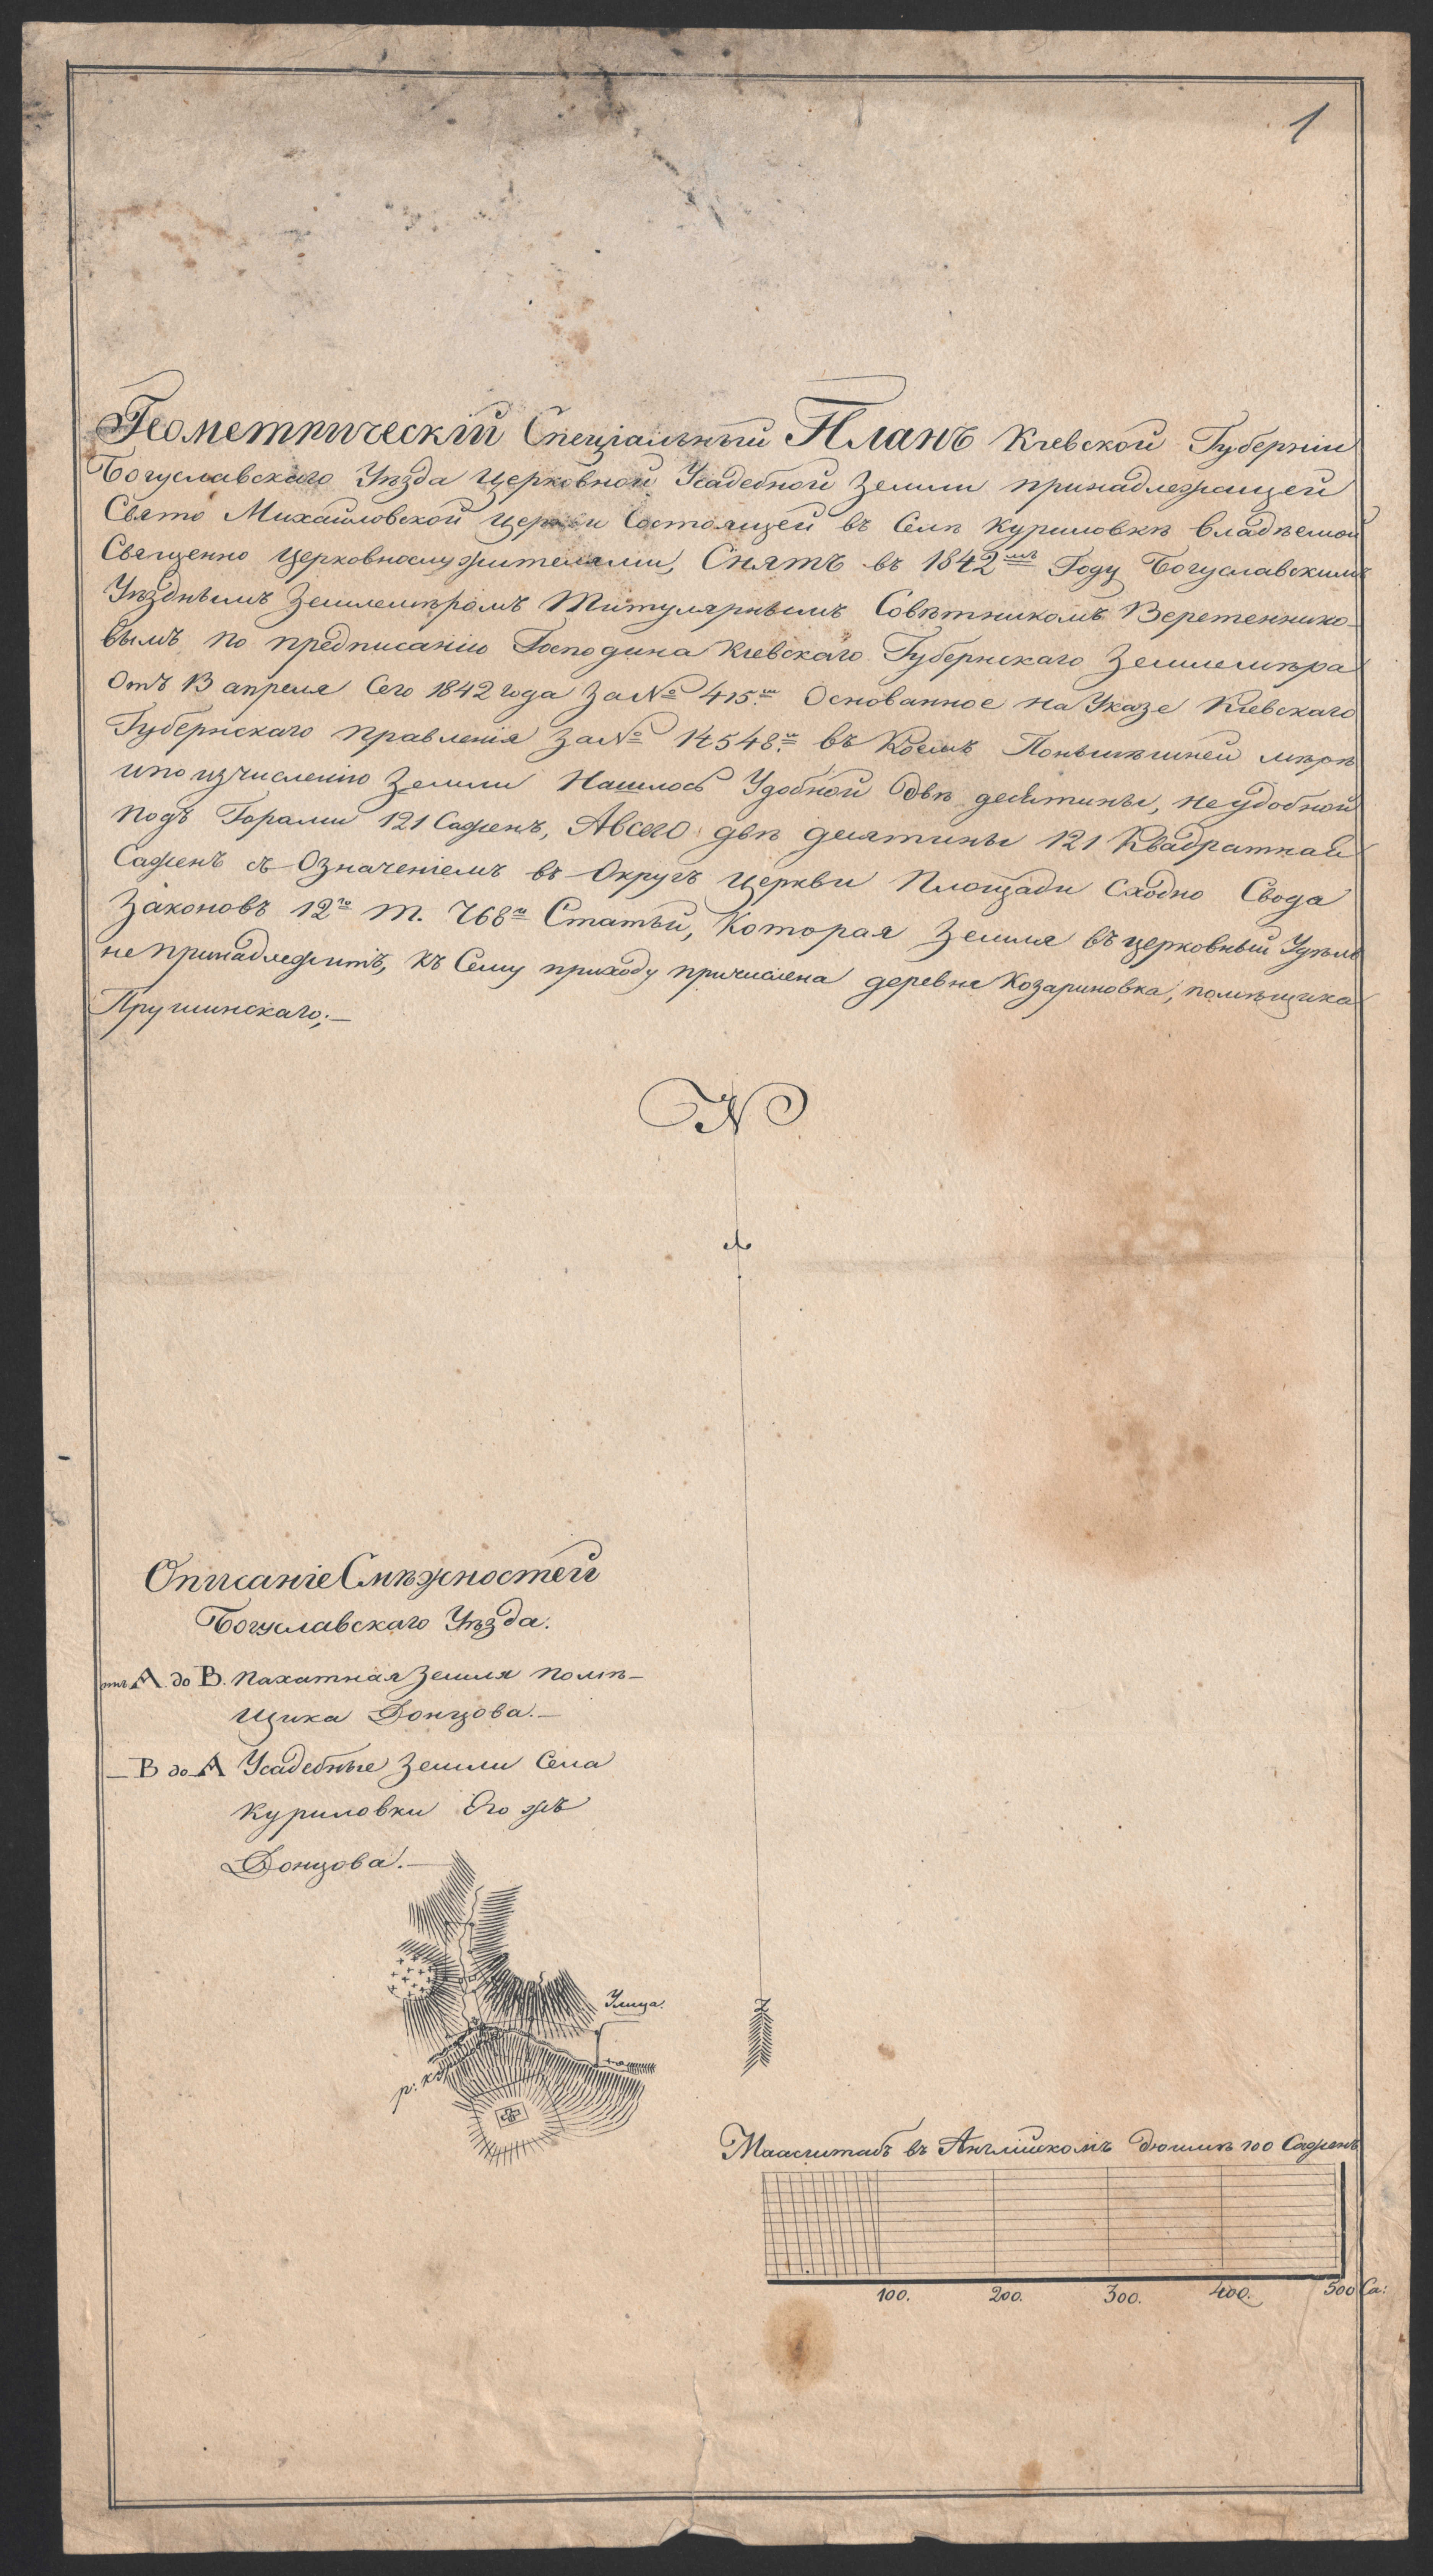 1
Геометрическій Спеціальный Планъ Кіевской Губерніи
Богуславскаго Уѣзда Церковной Усадебной Земли принадлежащей
Свято Михайловской Церкви Состоящей въ Селѣ Куриловкѣ владѣемой
Священно Церковнослужителями, Снятъ въ 1842мъ Году Богуславскимъ
Уѣзднымъ Землемѣромъ Титулярнымъ Совѣтникомъ Веретеннико-
вымъ по предписанію Господина Кіевскаго Губернскаго Землемѣра
Отъ 13 апреля Сего 1842 года За № 415.м Основанное на Указе Кіевскаго
Губернскаго Правленія За № 14548.м въ Коемъ Понынѣшней мѣрѣ
ипо изчисленію Земли Нашлось Удобной Двѣ десятины, неудобной
подъ Горами 121 Саженъ, Авсего двѣ десятины 121 Квадратная
Саженъ съ Означеніемъ въ Округъ Церкви Площади Сходно Свода
Законовъ 12го Т. 768й Статьи, Которая Земля въ церковный Удѣлъ
не принадлежитъ, къ Сему приходу причислена деревня Козариновка, помѣщика
Прушинскаго;—
N
Описаніе Смѣжностей
Богуславскаго Уѣзда.
отъ А до В. Пахатная Земля Помѣ-
щика Донцова.—
— В до А Усадебные Земли Села
Куриловки Его жъ
Донцова.—
Улица.
р:
Z
Маасштабъ въ Англійскомъ дюймѣ 100 Саженъ
100. 200. 300. 400. 500 Са: